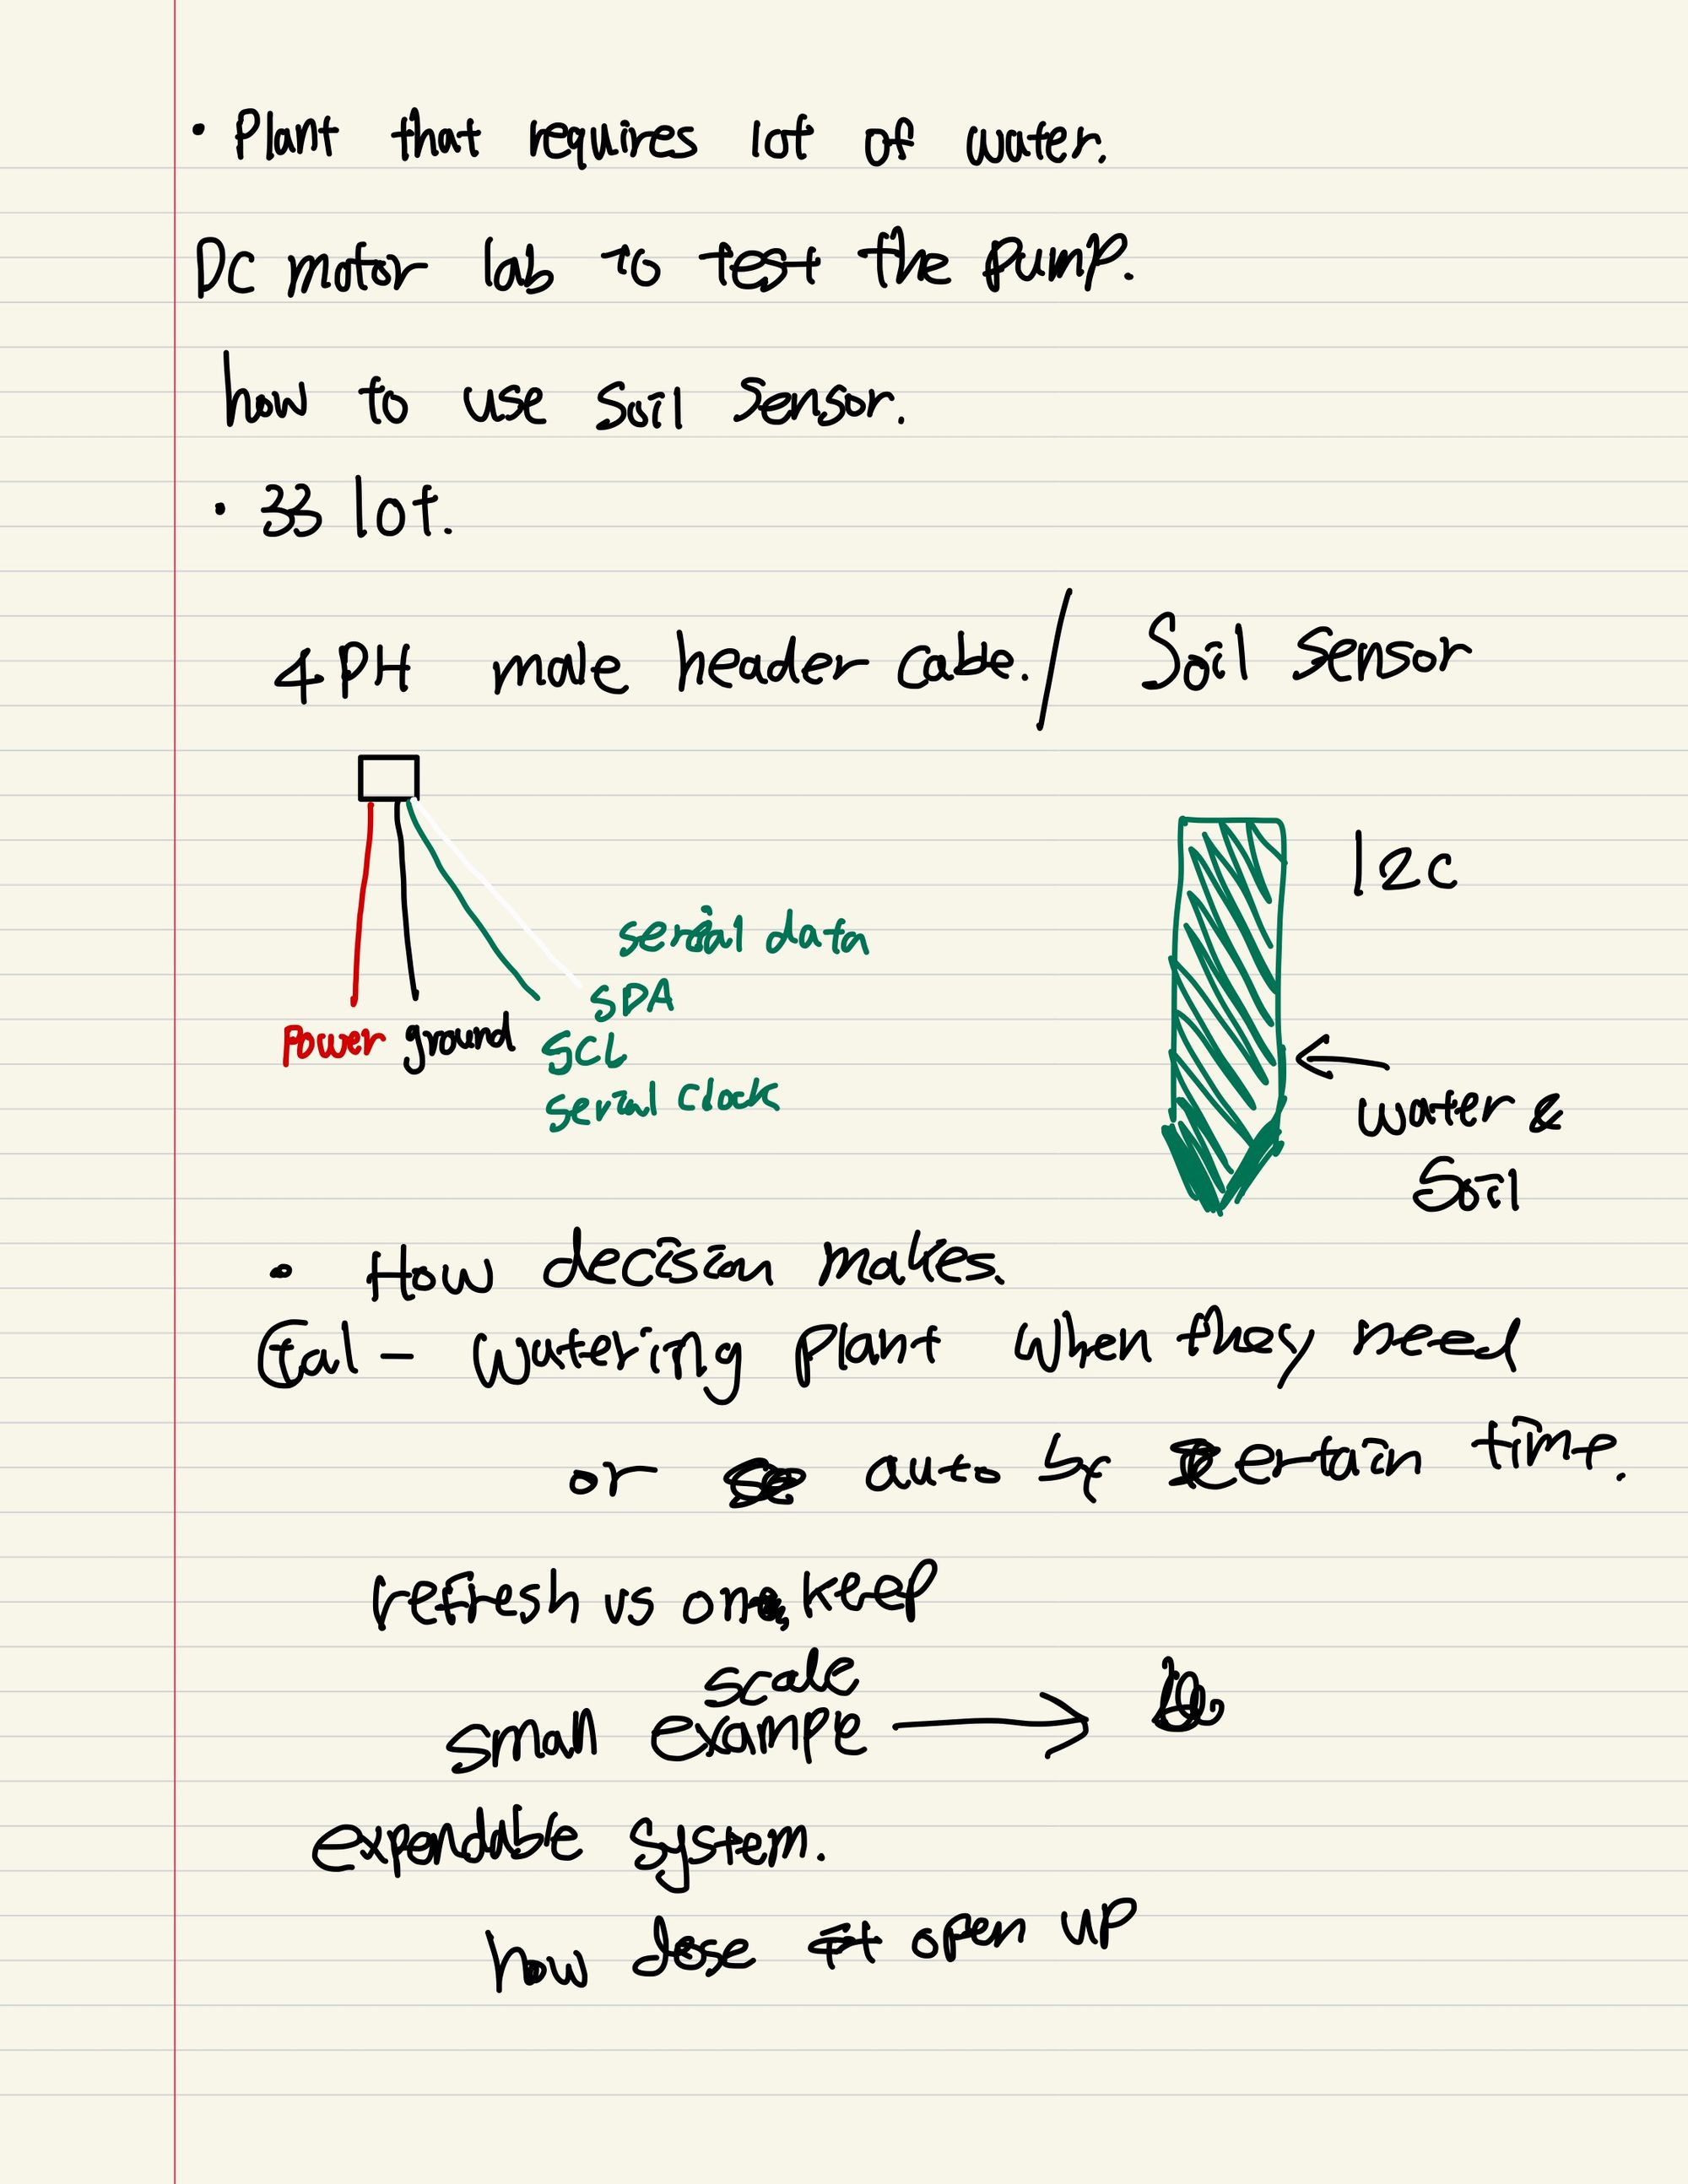 • Plant that requires lot of water.
DC motor lab to test the pump.
how to use soil sensor.
• 33 lot.
4 PH male header cable. / Soil sensor
I2C
serial data
SDA
power ground SCL
serial clock
water &
Soil
• How decision makes.
Goal - Watering plant when they need
or auto by certain time.
refresh vs one keep
scale
small exampe →
expendable system.
how dose it open up